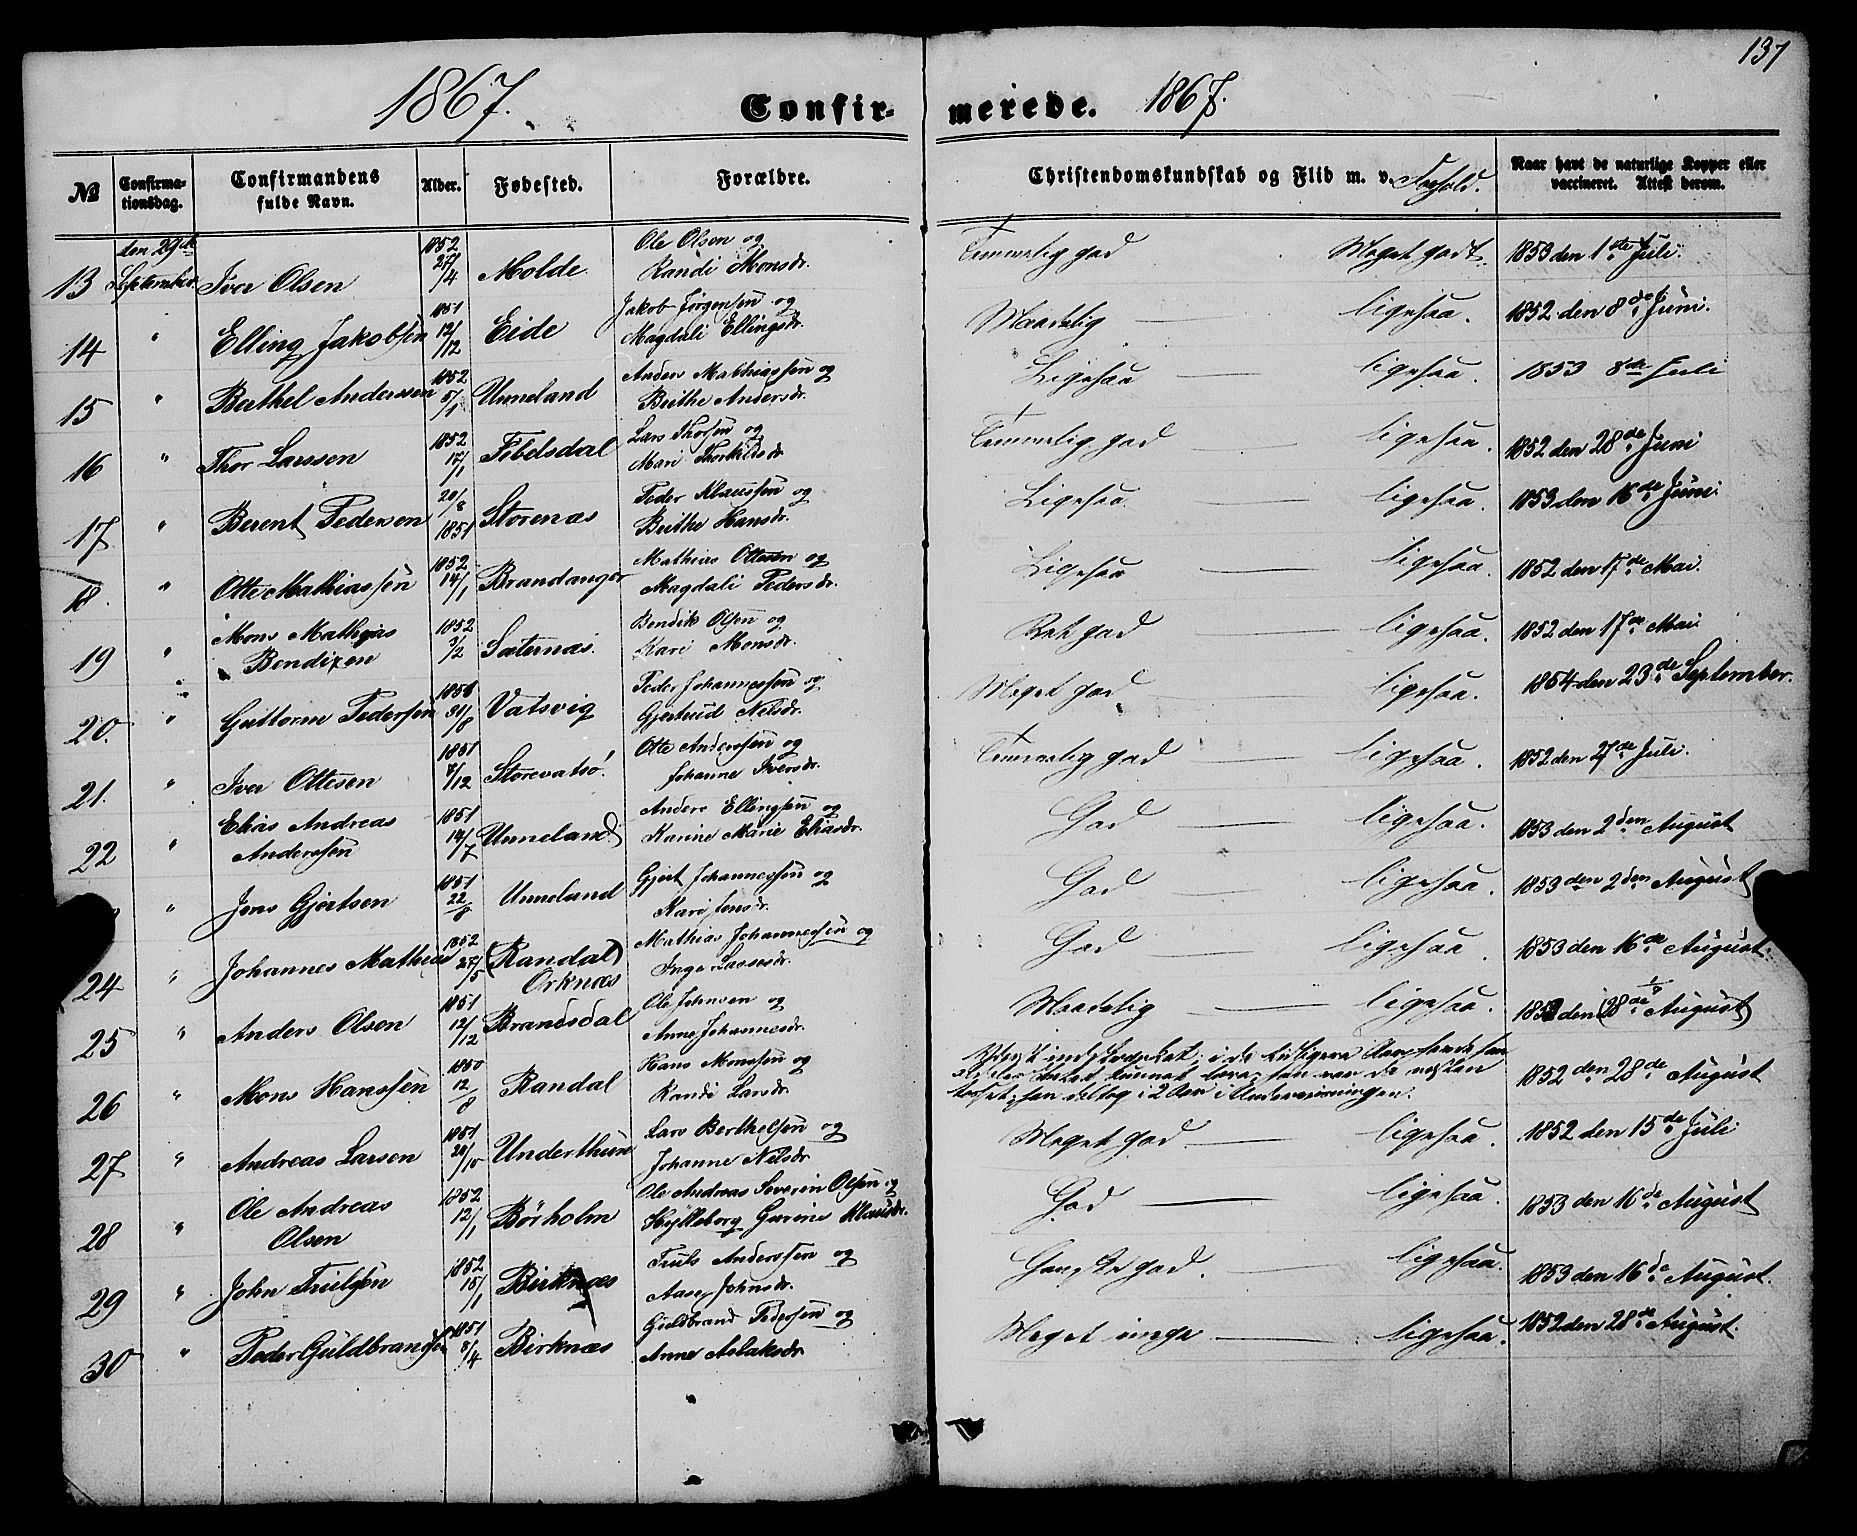 137
1867.
Confirmerede. 1867.
№ Confirmationsdag. Confirmandens fulde Navn. Alder. Fødested. Forældre. Christendomskundskab og Flid m. v. Forhold. Naar havt de naturlige Kopper eller vaccineret. Attest derom.
13 den 29de September Iver Olsen 1852 27/4 Molde. Ole Olsen og Randi Monsdr. Temmelig god Meget godt. 1853 den 1ste Juli.
14 " Elling Jakobsen 1851 12/12 Eide Jakob Jørgensen og Magdali Ellingsdr. Maadelig — ligesaa. 1852 den 8de Juni.
15 " Berthel Anderssen 1852 5/1 Unneland Anders Mathiassen og Brithe Andersdr. Ligesaa — ligesaa. 1853 8de Juli
16 " Thor Larssen 1852 17/1 Tibelsdal Lars Thorsen og Mari Thorkildsdr. Temmelig god — ligesaa. 1852 den 28de Juni
17 " Berent Pedersen 20/8 1851 Storenæs Peder Klaussen og Brithe Hansdr. Ligesaa — ligesaa. 1853 den 16de Juni.
18. " Otte Mathiassen 1852 14/1 Brandanger Mathias Ottesen og Magdali Pedersdr. Ligesaa — ligesaa. 1852 den 17de Mai.
19 " Mons Mathias Bendixen 1852 3/2 Sæternæs. Bendik Olsen og Kari Monsdr. Ret god — ligesaa. 1852 den 17de Mai
20. " Guttorm Pedersen 31/8 Vatsvig Peder Johannessen og Gjertrud Nelsdr. Meget god — ligesaa. 1854 den 23de September.
21. " Iver Ottesen 1851 /12 Storevatsø. Otte Anderssen og Johanne Iversdr. Temmelig god — ligesaa. 1852 den 27de Juli.
22 " Elias Andreas Anderssen 1851 14/7 Unneland. Anders Ellingsen og Karine Marie Eliasdr. God — ligesaa. 1853 den 2den August
" Jens Gjertsen 1851 22/8 Unneland Gjert Johannessen og Kari Jensdr. God — ligesaa. 1853 den 2den August
24 " Johannes Mathias 1852 27/5 (Randal) Orknæs Mathias Johannessen og Inga Lassesdr. God — ligesaa. 1853 den 16de August.
25 " Anders Olsen 1851 12/12 Brandsdal Ole Johnsen og Anne Johannesdr. Maadelig — ligesaa. 1852 den (28de August)
26 " Mons Hanssen 1850 12/8 Randal Hans Monssen og Randi Larsdr. 1852 den 28de August
27 " Andreas Larsen 1851 20/10 Underthun Lars Berthelsen og Johanne Nelsdr. Meget god — ligesaa. 1852 den 15de Juli
28 " Ole Andreas Olsen 1852 12/1 Børholm Ole Andreas Severin Olsen og Hylleborg Gurine Klausdr. God — ligesaa. 1853 den 16de August
29 " John Trulsen 1852 15/1 Birknæs Truls Anderssen og Aase Johnsdr. Ganske god. — ligesaa. 1853 den 16de August.
30 " Peder Guldbrandsen 1851 8/4 Birknæs Guldbrand Pedersen og Anne Aslaksdr Meget — ligesaa. 1852 den 28de August.